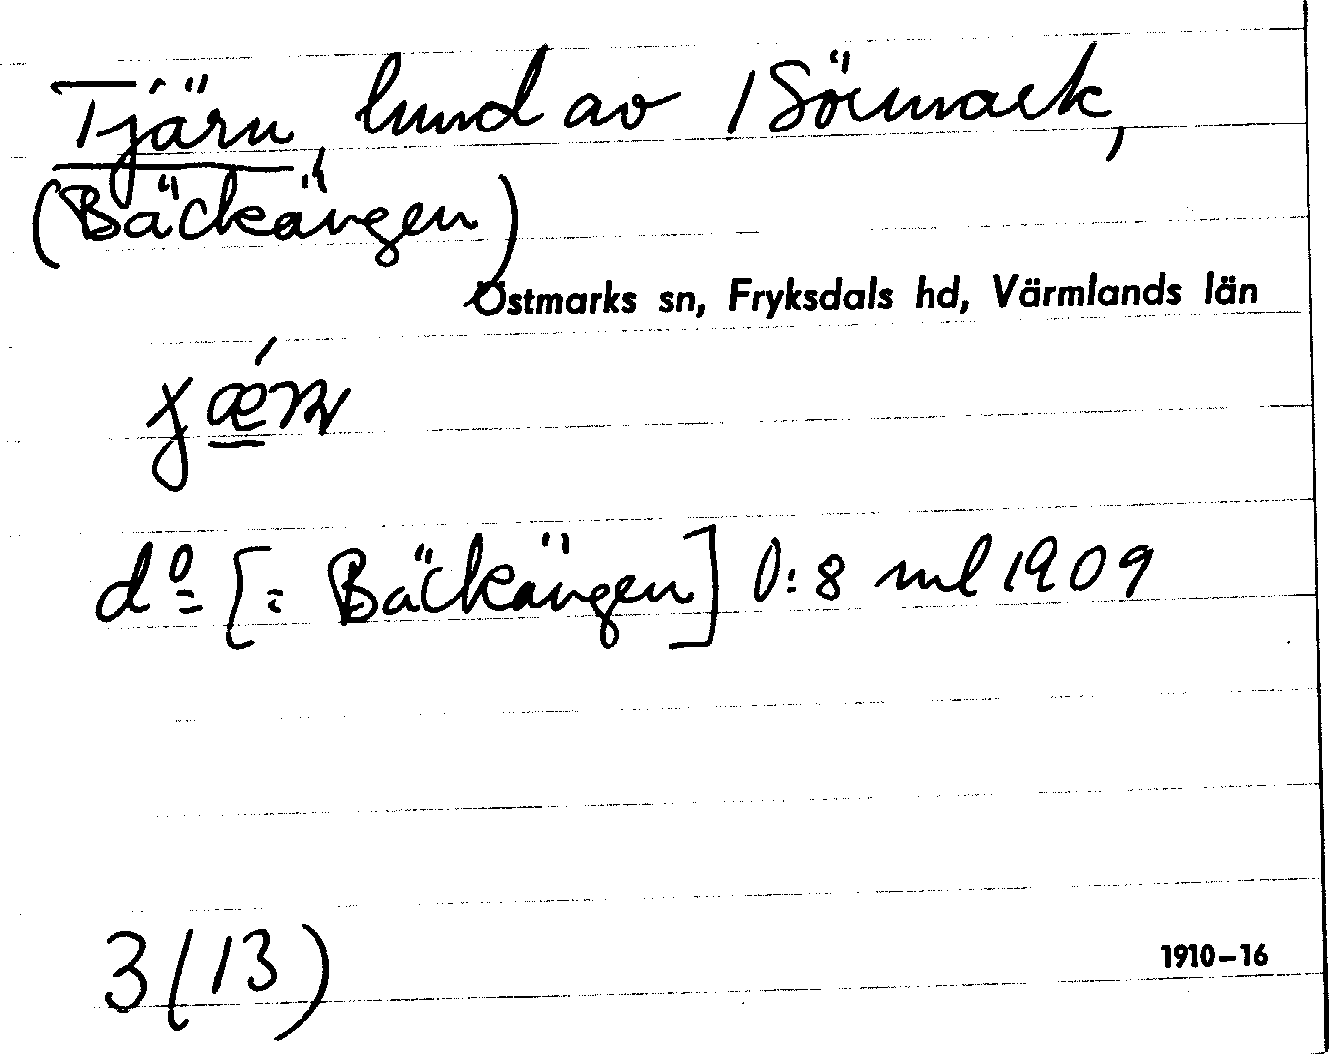 Tjärn, lund av 1 Sörmark,
(Bäckängen)
Östmarks sn, Fryksdals hd, Värmlands län
do [= Bäckängen] l:8 ml 1909
3 (13)
1910–16